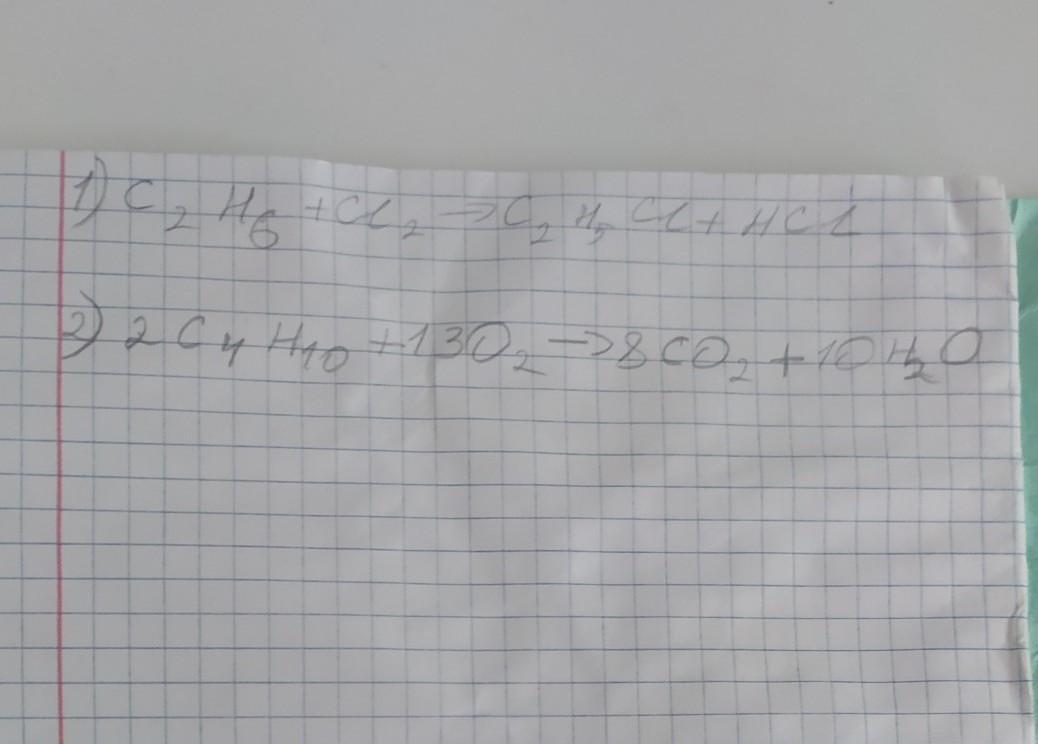 1) C₂H₆ + Cl₂ → C₂H₅Cl + HCl
2) 2C₄H₁₀ + 13O₂ → 8CO₂ + 10H₂O